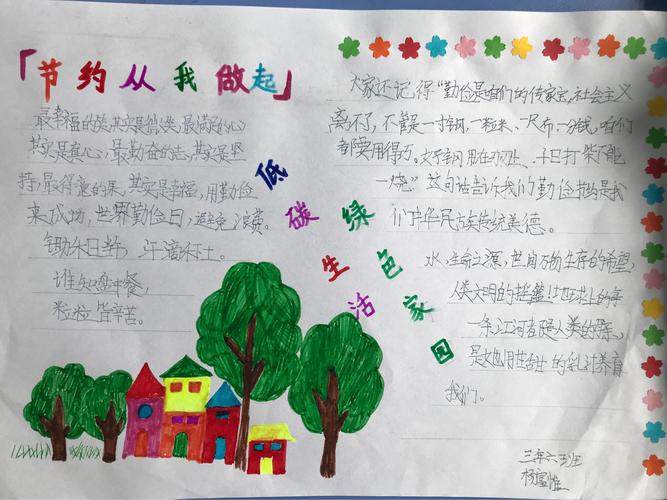 「节约从我做起」
最幸福的笑,其实是微笑,最满足的心
其实是真心,最勤奋的志,其实是坚
持,最得意的果,其实是幸福,用勤俭
来成功,世界勤俭日,避免浪费。
锄禾日当午,汗滴禾下土。
谁知盘中餐,
粒粒皆辛苦。
低碳生活
绿色家园
大家还记得“勤俭是咱们的传家宝,社会主义
离不了,不管是一寸钢,一粒米、一尺布、一分钱,咱们
都要用得巧。好钢用在刀刃上、千日打柴不能
一烧”这句话告诉我们勤俭节约是我
们中华民族传统美德。
水,生命之源,世间万物生存的希望,
人类文明的摇篮!地球上的每
一条江河都是人类的母亲,
是她用甘甜的乳汁养育
我们。
三年六班
杨富惟